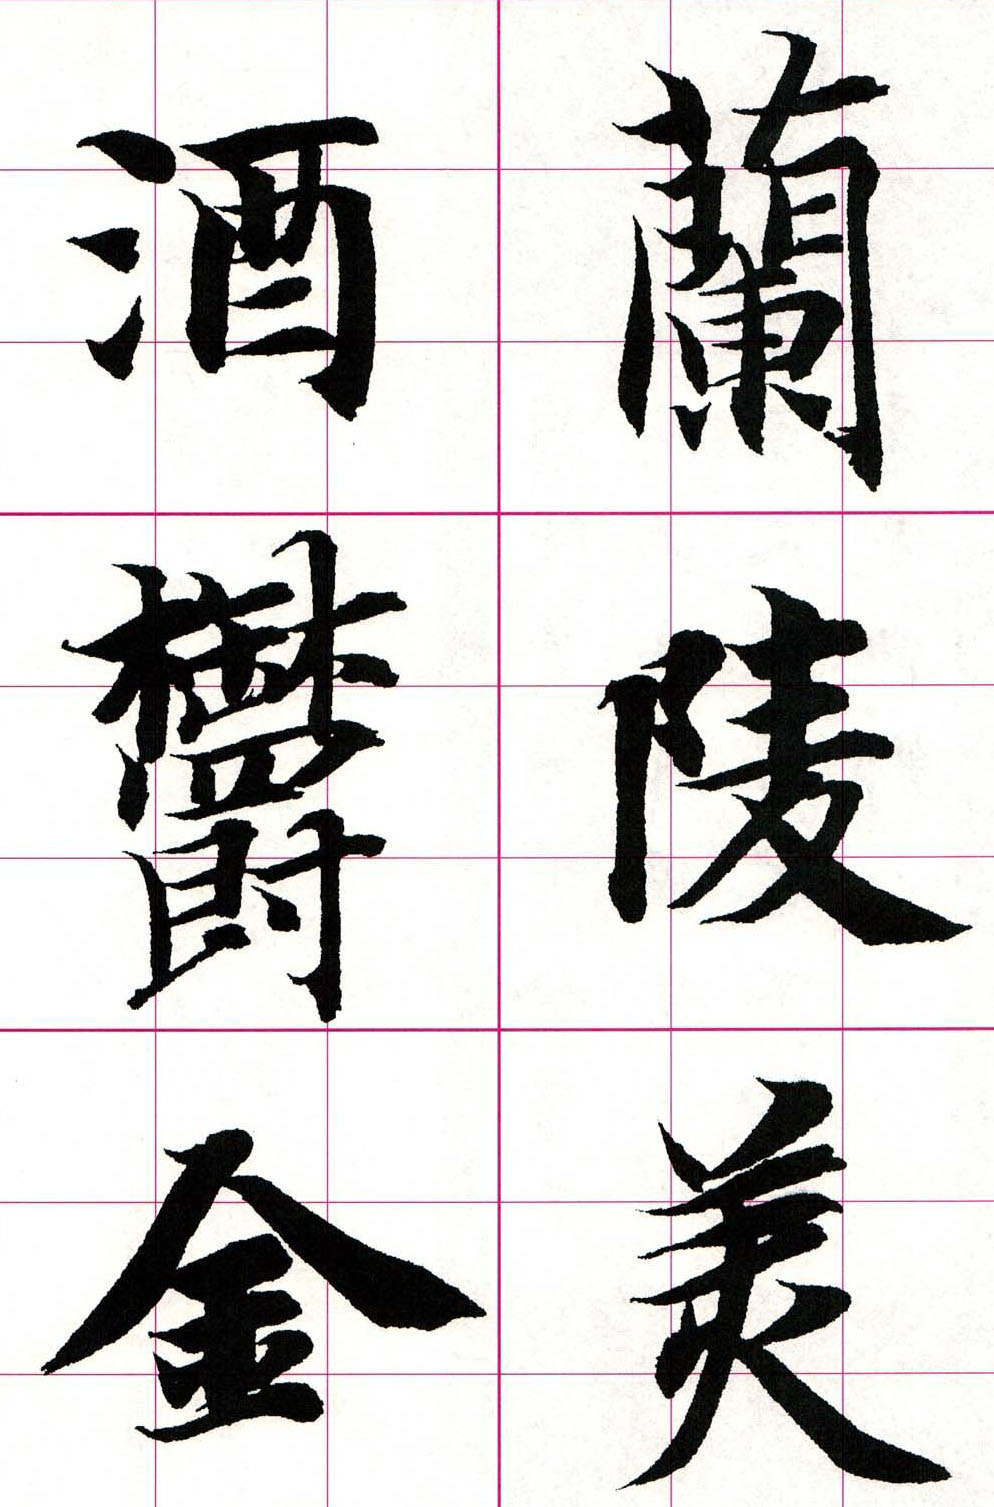 蘭陵美
酒鬱金